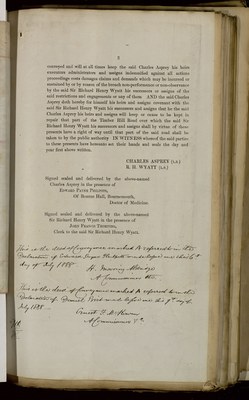 3
conveyed and will at all times keep the said Charles Asprey his heirs
executors administrators and assigns indemnified against all actions
proceedings costs damages claims and demands which may be incurred or
sustained by or by reason of the breach non-performance or non-observance
by the said Sir Richard Henry Wyatt his successors or assigns of the
said restrictions and engagements or any of them AND the said Charles
Asprey doth hereby for himself his heirs and assigns covenant with the
said Sir Richard Henry Wyatt his successors and assigns that he the said
Charles Asprey his heirs and assigns will keep or cause to be kept in
repair that part of the Timber Hill Road over which the said Sir
Richard Henry Wyatt his successors and assigns shall by virtue of these
presents have a right of way until that part of the said road shall be
taken to by the public authority IN WITNESS whereof the said parties
to these presents have hereunto set their hands and seals the day and
year first above written.
CHARLES ASPREY (L.S.)
R. H. WYATT (L.S.)
Signed sealed and delivered by the above-named
Charles Asprey in the presence of
Of Bourne Hall, Bournemouth,
Doctor of Medicine.
Signed sealed and delivered by the above-named
Sir Richard Henry Wyatt in the presence of
Clerk to the said Sir Richard Wyatt.
This is the deed of Conveyance marked A referred to in the
Declaration of
day of July 1888
A Commissioner &c.
This is the deed of Conveyance marked A referred to in the
Declaration of
July 1888
A Commissioner &c.